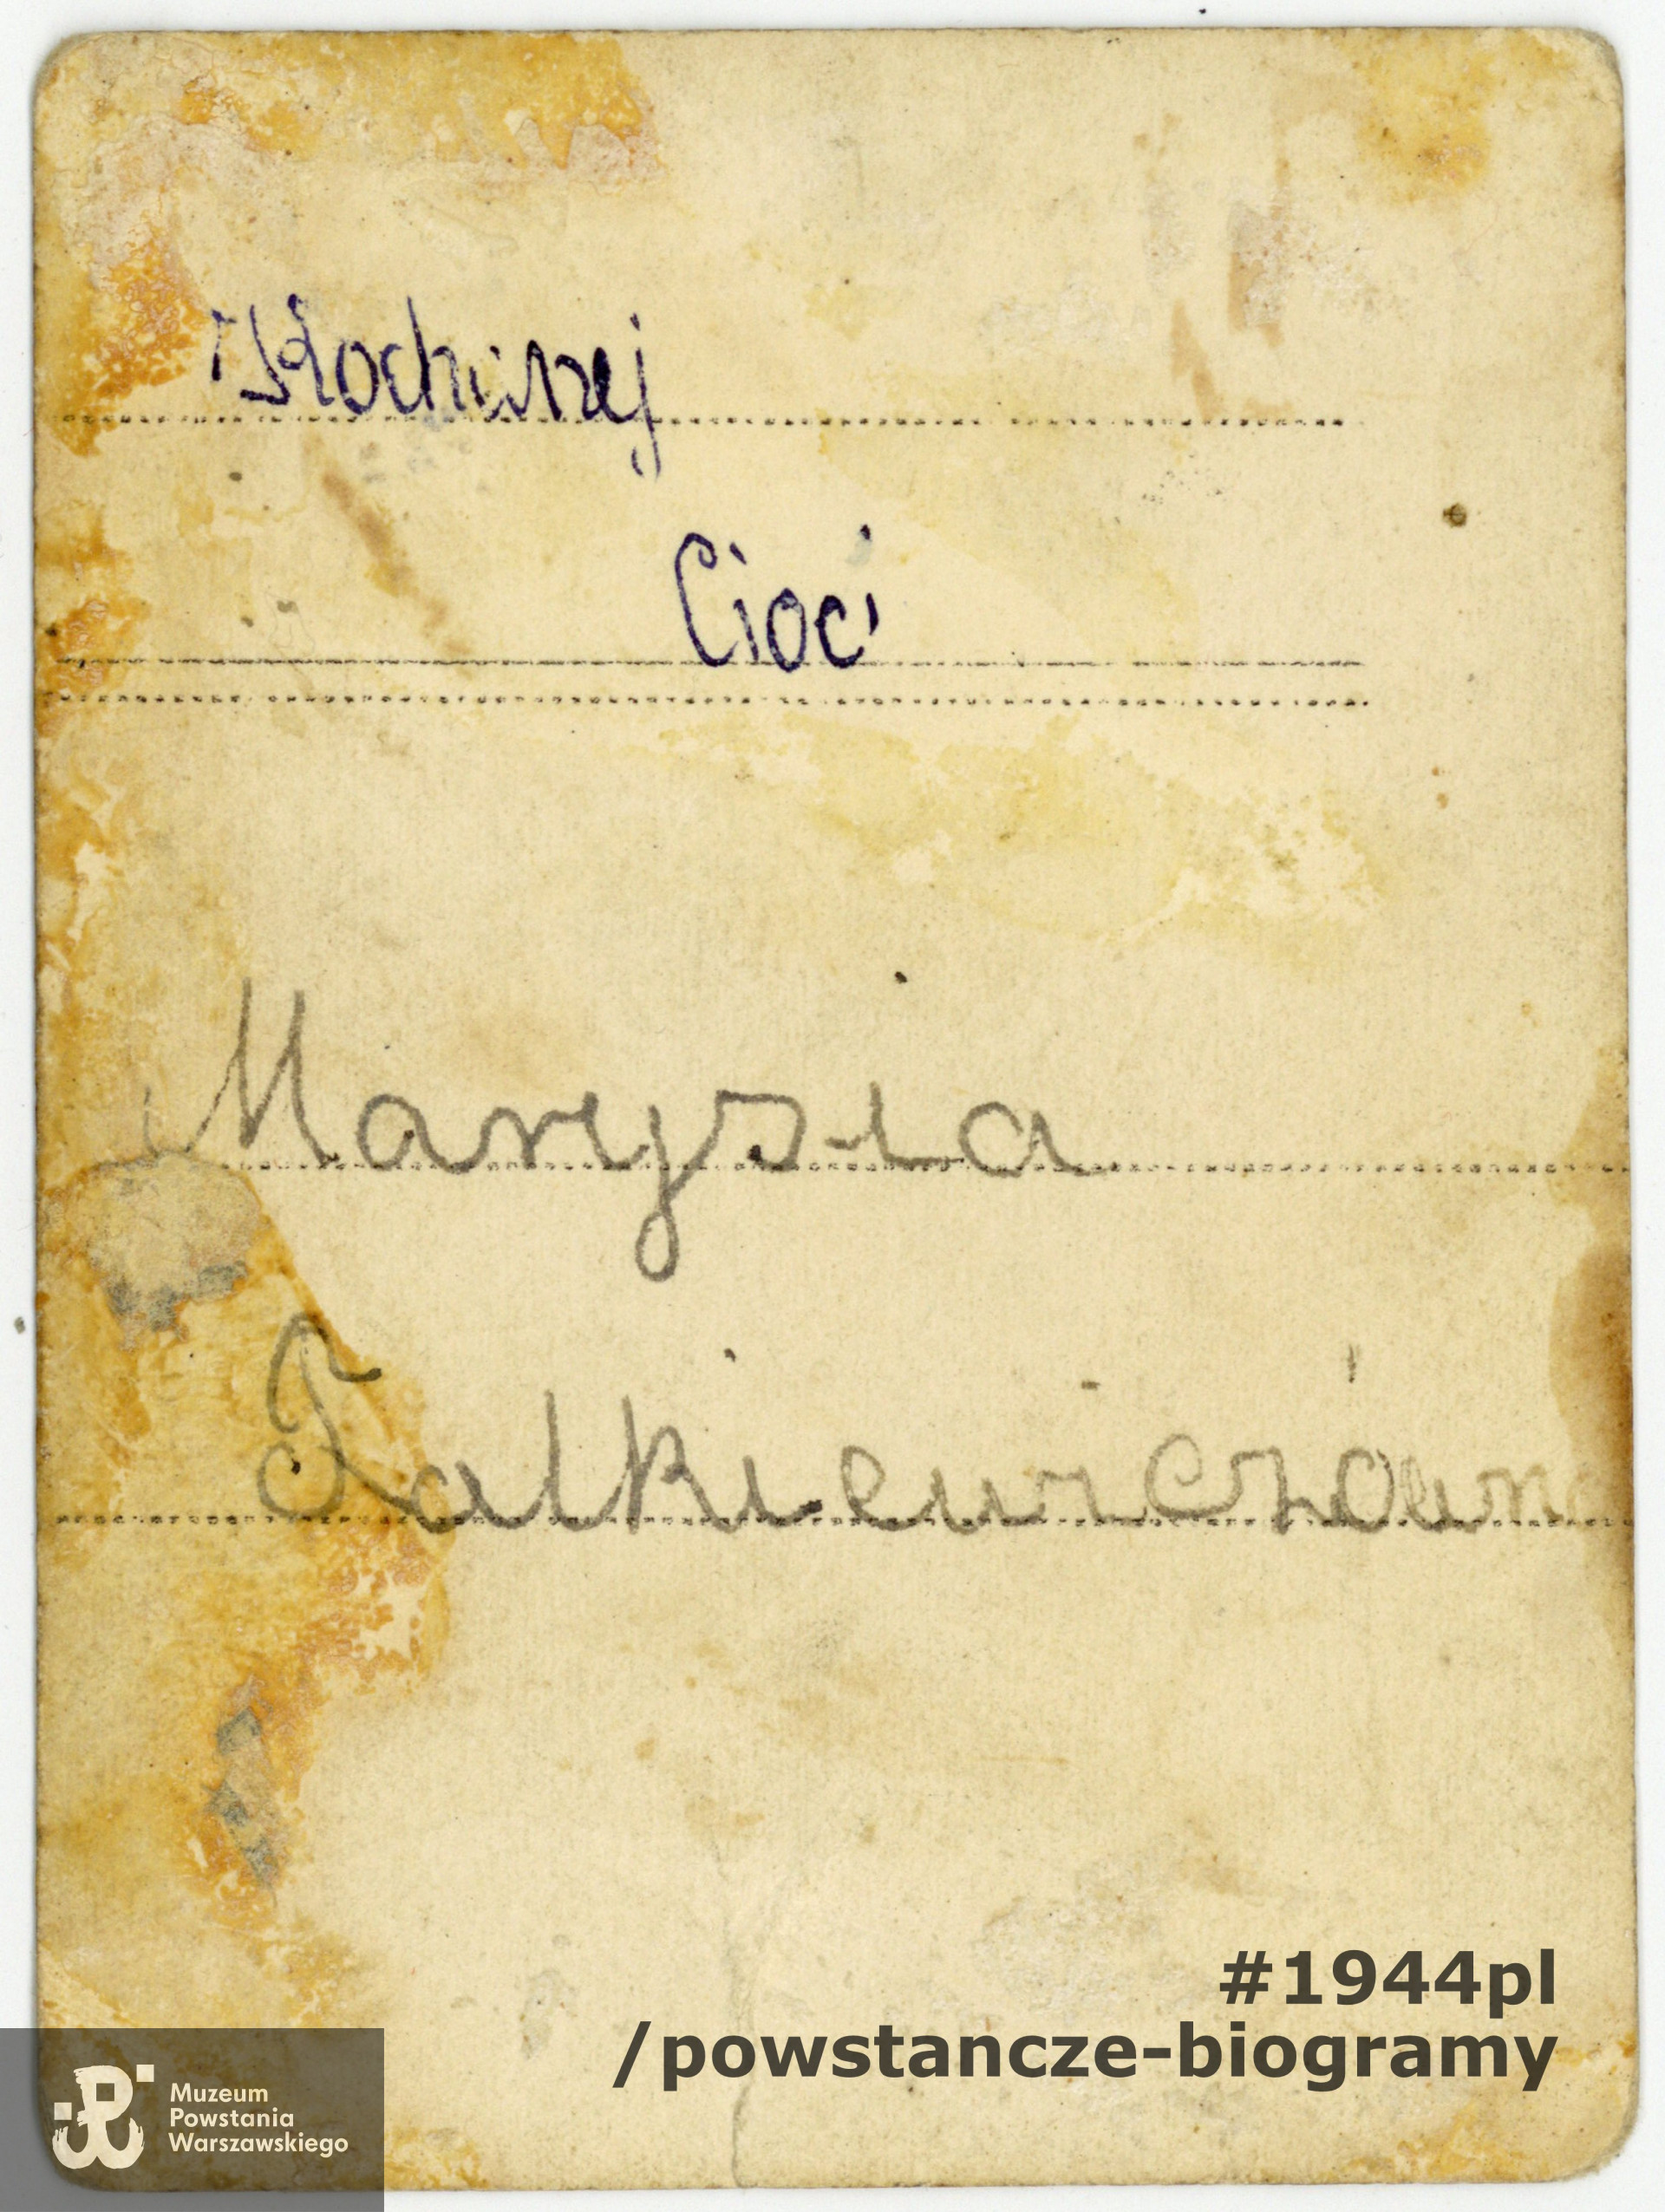 Kochanej
Cioci
Marysia
Falkiewiczówna
#1944pl
/powstancze-biogramy
Muzeum
Powstania
Warszawskiego